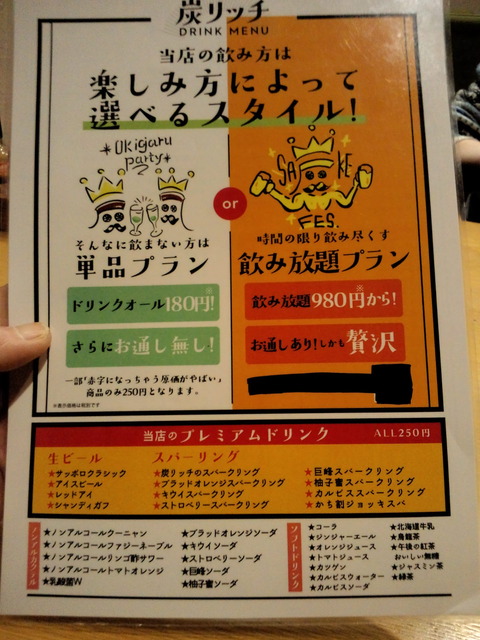 炭リッチ
DRINK MENU
当店の飲み方は
楽しみ方によって
選べるスタイル!
Okigaru
party
SAKE
FES.
or
そんなに飲まない方は
単品プラン
時間の限り飲み尽くす
飲み放題プラン
ドリンクオール180円!※
さらにお通し無し!
飲み放題980円から!※
お通しあり!しかも贅沢
一部「赤字になっちゃう原価がやばい」
商品のみ250円となります。
※表示価格は税別です
当店のプレミアムドリンク ALL250円
生ビール
★サッポロクラシック
★アイスビール
★レッドアイ
★シャンディガフ
スパーリング
★炭リッチのスパークリング
★ブラッドオレンジスパークリング
★キウイスパークリング
★ストロベリースパークリング
★巨峰スパークリング
★柚子蜜スパークリング
★カルピススパークリング
★かち割ジョッキスパ
ノンアルカクテル
★ノンアルコールクーニャン
★ノンアルコールファジーネーブル
★ノンアルコールリンゴ酢サワー
★ノンアルコールトマトオレンジ
★乳酸菌W
★ブラッドオレンジソーダ
★キウイソーダ
★ストロベリーソーダ
★巨峰ソーダ
★柚子蜜ソーダ
ソフトドリンク
★コーラ
★ジンジャーエール
★オレンジジュース
★トマトジュース
★カツゲン
★カルピスウォーター
★カルピスソーダ
★北海道牛乳
★烏龍茶
★午後の紅茶
おいしい無糖
★ジャスミン茶
★緑茶